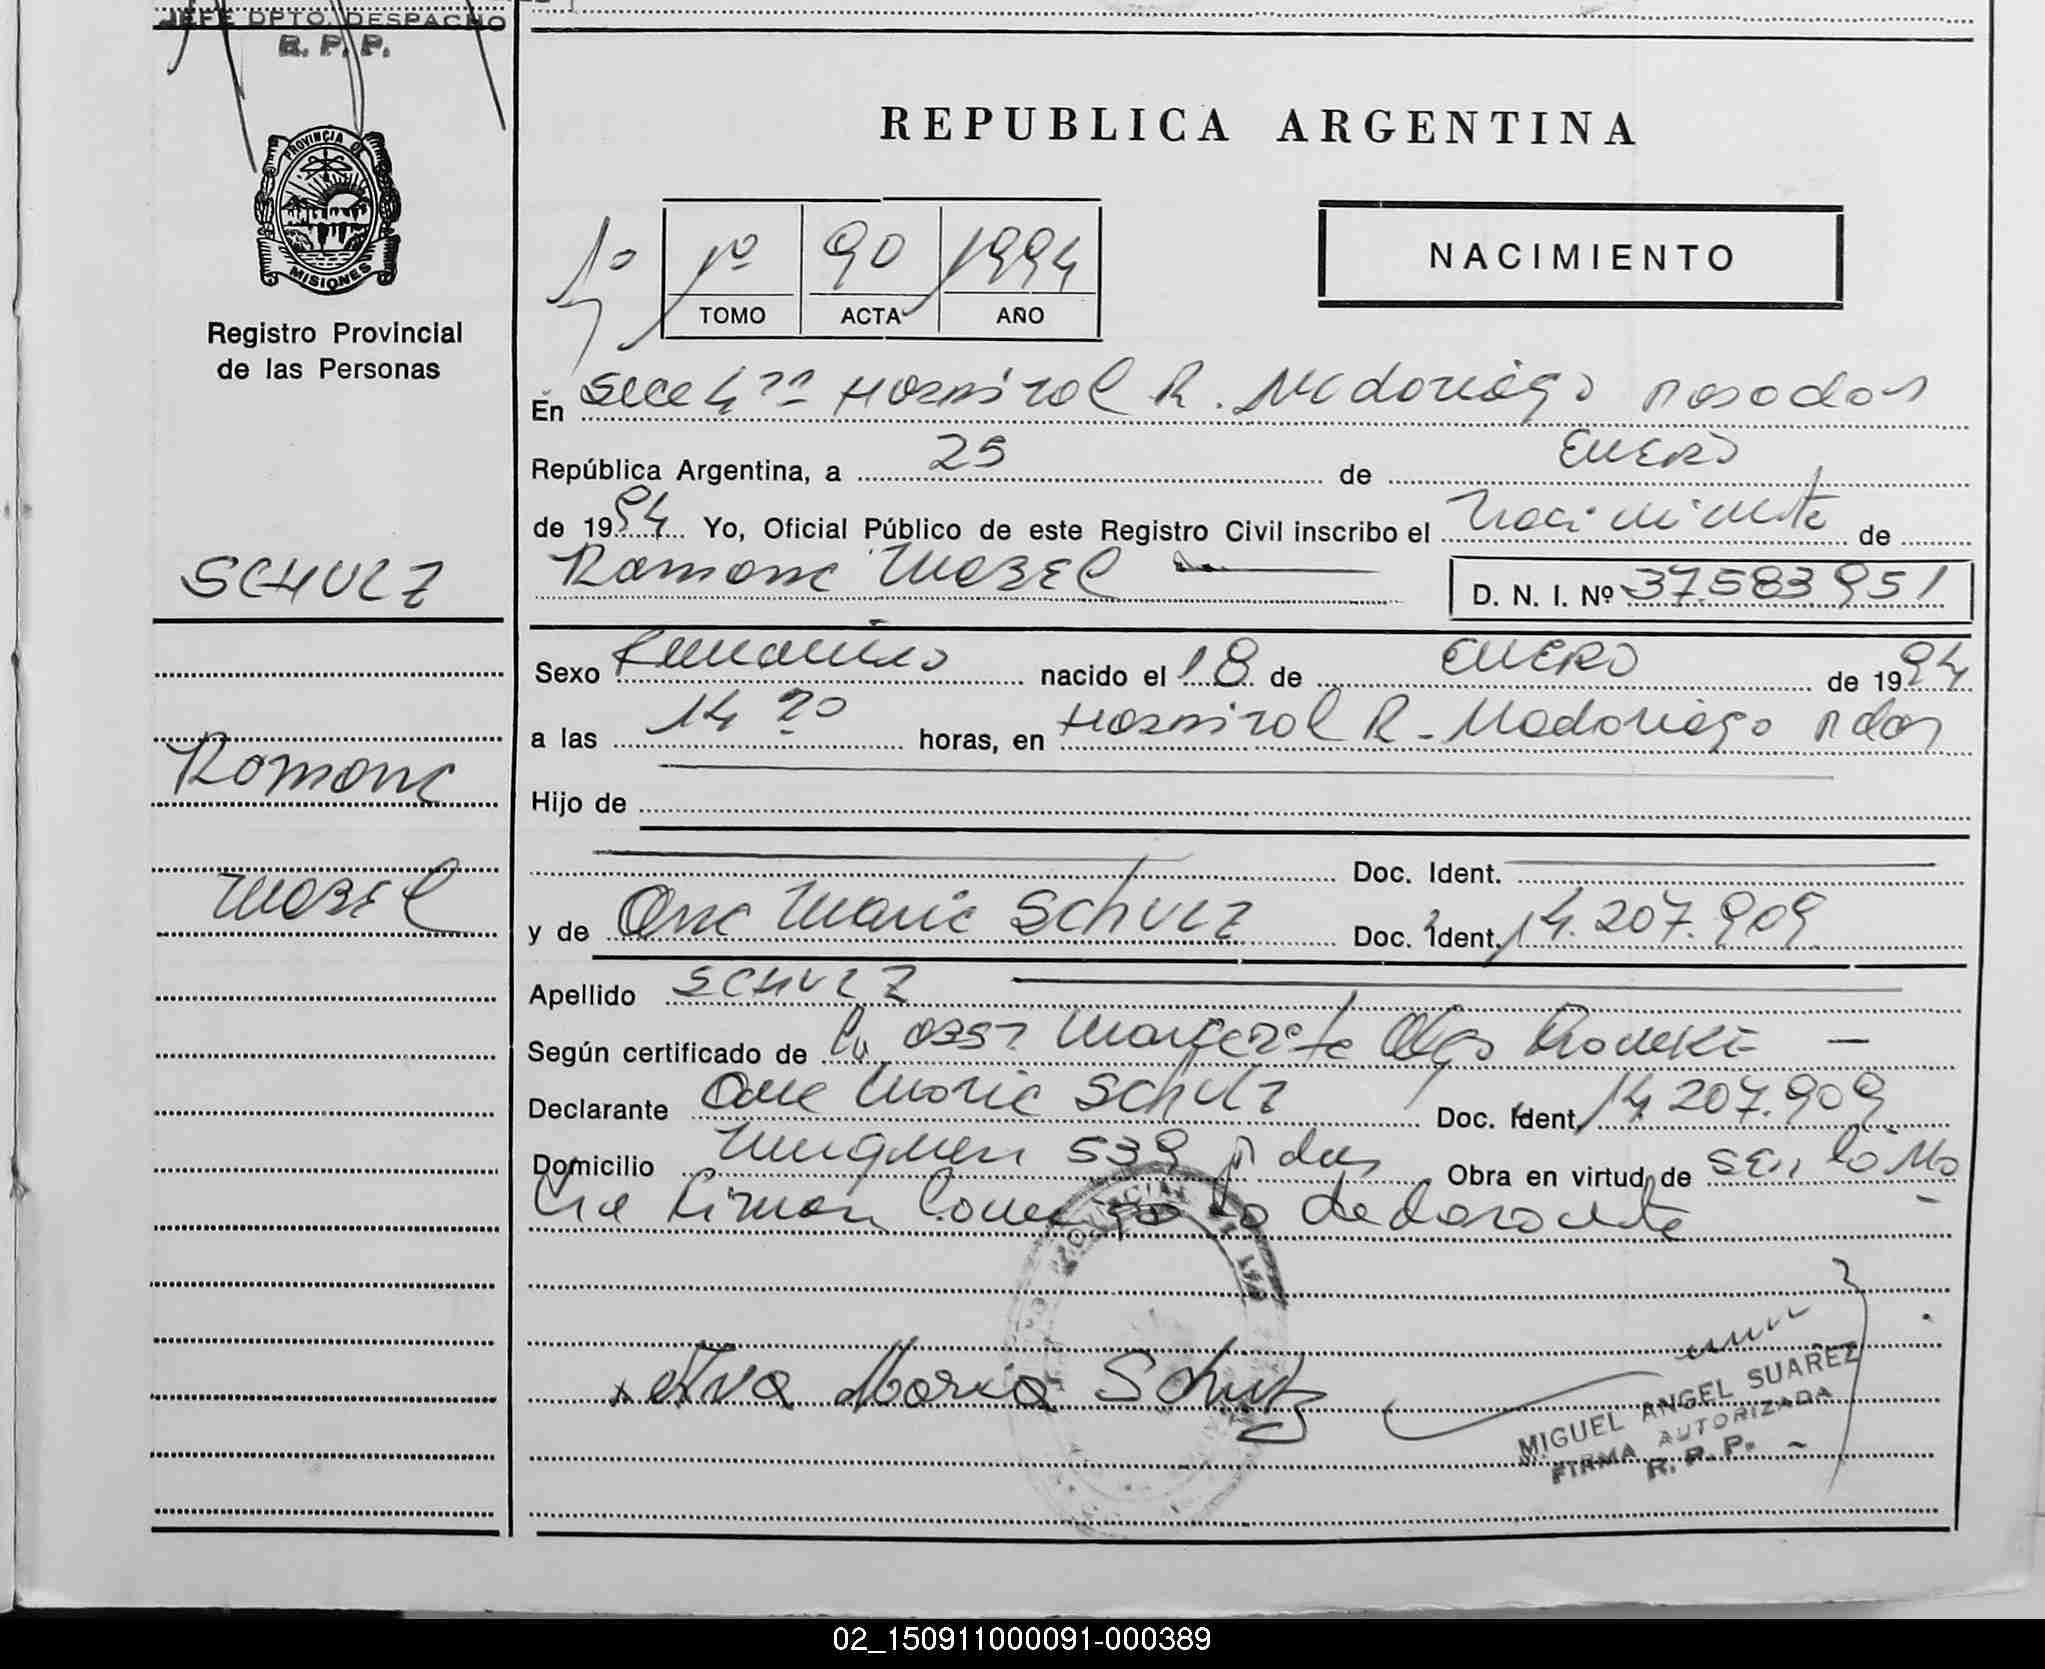 JEFE DPTO. DESPACHO
R. P. P.
PROVINCIA DE
MISIONES
Registro Provincial
de las Personas
SCHULZ
Ramona
Mabel
REPUBLICA ARGENTINA
1º 1º 90 1994
TOMO ACTA AÑO
NACIMIENTO
En Secc 4ta Hospital R. Madariaga Posadas
República Argentina, a 25 de ENERO
de 1994 Yo, Oficial Público de este Registro Civil inscribo el Nacimiento de
Ramona MABEL D. N. I. Nº 37.583.951
Sexo Femenino nacido el 18 de ENERO de 1994
a las 14 20 horas, en Hospital R. Madariaga Pdas
Hijo de
Doc. Ident.
y de Ana Maria Schulz Doc. Ident. 14.207.909
Apellido SCHULZ
Según certificado de la obst Margarete Olga
Declarante Ana Maria Schulz Doc. Ident. 14.207.909
Domicilio Neuquen 539 Pdas Obra en virtud de ser la Ma
dre Firman Conmigo la declarante
Ana Maria Schulz
MIGUEL ANGEL SUAREZ
FIRMA AUTORIZADA
R. P. P.
02_150911000091-000389